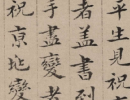 平生見祝
者盖書到
手盡變者
祝京地變